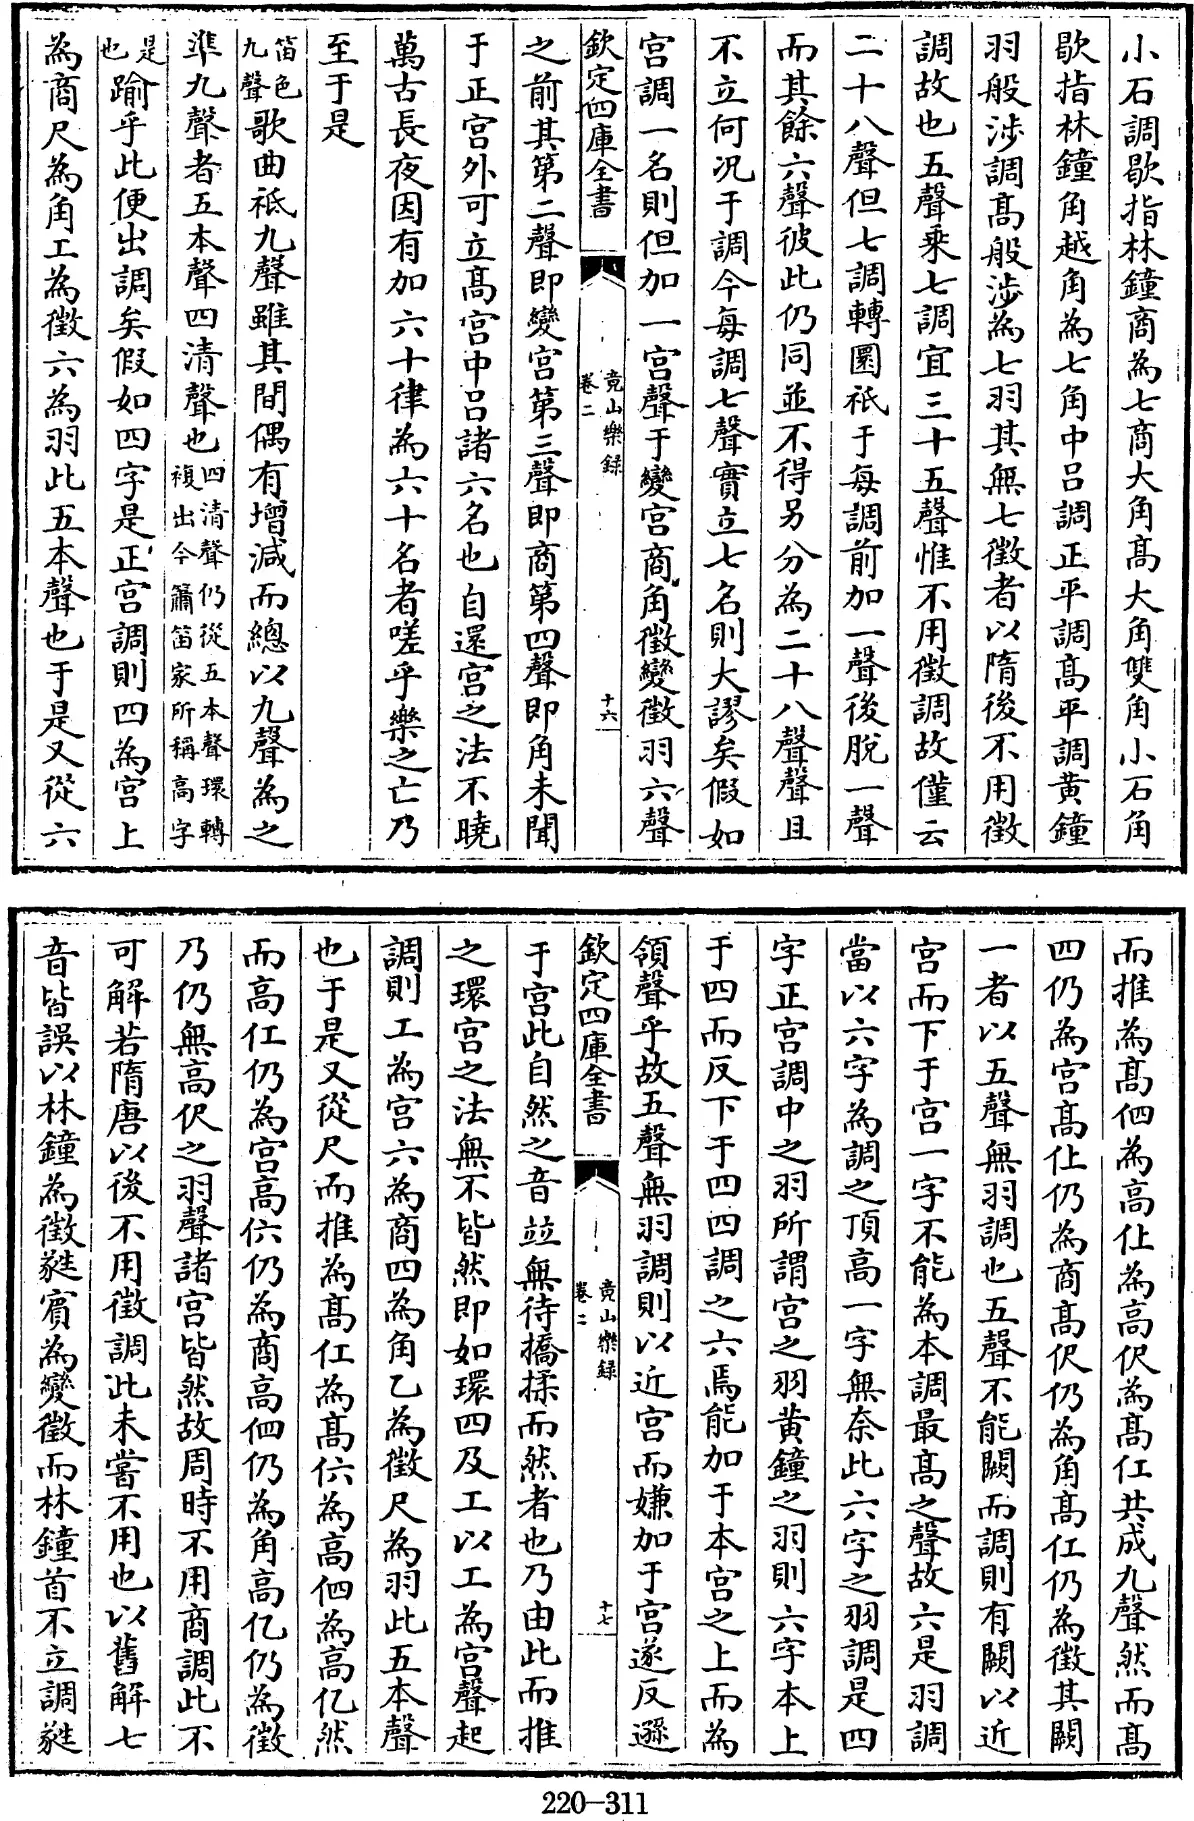 小石調歇指林鐘商為七商大角髙大角雙角小石角
歇指林鐘角越角為七角中呂調正平調髙平調黄鐘
羽般涉調髙般涉為七羽其無七徵者以隋後不用徵
調故也五聲乘七調宜三十五聲惟不用徵調故僅云
二十八聲但七調轉圜祇于每調前加一聲後脱一聲
而其餘六聲彼此仍同並不得另分為二十八聲聲且
不立何况于調今每調七聲實立七名則大謬矣假如
宫調一名則但加一宫聲于變宫商角徵變徵羽六聲
欽定四庫全書
竟山樂録
卷二
十六
之前其第二聲即變宫第三聲即商第四聲即角未聞
于正宫外可立髙宫中呂諸六名也自還宫之法不曉
萬古長夜因有加六十律為六十名者嗟乎樂之亡乃
至于是
笛色
九聲歌曲祗九聲雖其間偶有增減而總以九聲為之
準九聲者五本聲四清聲也四清聲仍從五本聲環轉
複出今簫笛家所稱高字
是
也踰乎此便出調矣假如四字是正宫調則四為宫上
為商尺為角工為徵六為羽此五本聲也于是又從六
而推為髙伵為高仩為高伬為髙仜共成九聲然而高
四仍為宫髙仩仍為商髙伬仍為角高仜仍為徵其闕
一者以五聲無羽調也五聲不能闕而調則有闕以近
宫而下于宫一字不能為本調最髙之聲故六是羽調
當以六字為調之頂高一字無奈此六字之羽調是四
字正宫調中之羽所謂宫之羽黄鐘之羽則六字本上
于四而反下于四四調之六焉能加于本宫之上而為
領聲乎故五聲無羽調則以近宫而嫌加于宫遂反遜
欽定四庫全書
竟山樂録
卷二
十七
于宫此自然之音並無待撟揉而然者也乃由此而推
之環宫之法無不皆然即如環四及工以工為宫聲起
調則工為宫六為商四為角乙為徵尺為羽此五本聲
也于是又從尺而推為髙仜為髙𠆾為高伵為高亿然
而高仜仍為宫高𠆾仍為商高伵仍為角高亿仍為徵
乃仍無高伬之羽聲諸宫皆然故周時不用商調此不
可解若隋唐以後不用徵調此未嘗不用也以舊解七
音皆誤以林鐘為徵蕤賓為變徵而林鐘首不立調蕤
220-311